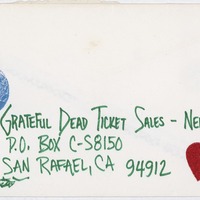 GRATEFUL DEAD TICKET SALES - NE
P.O. BOX C-S8150
SAN RAFAEL, CA 94912